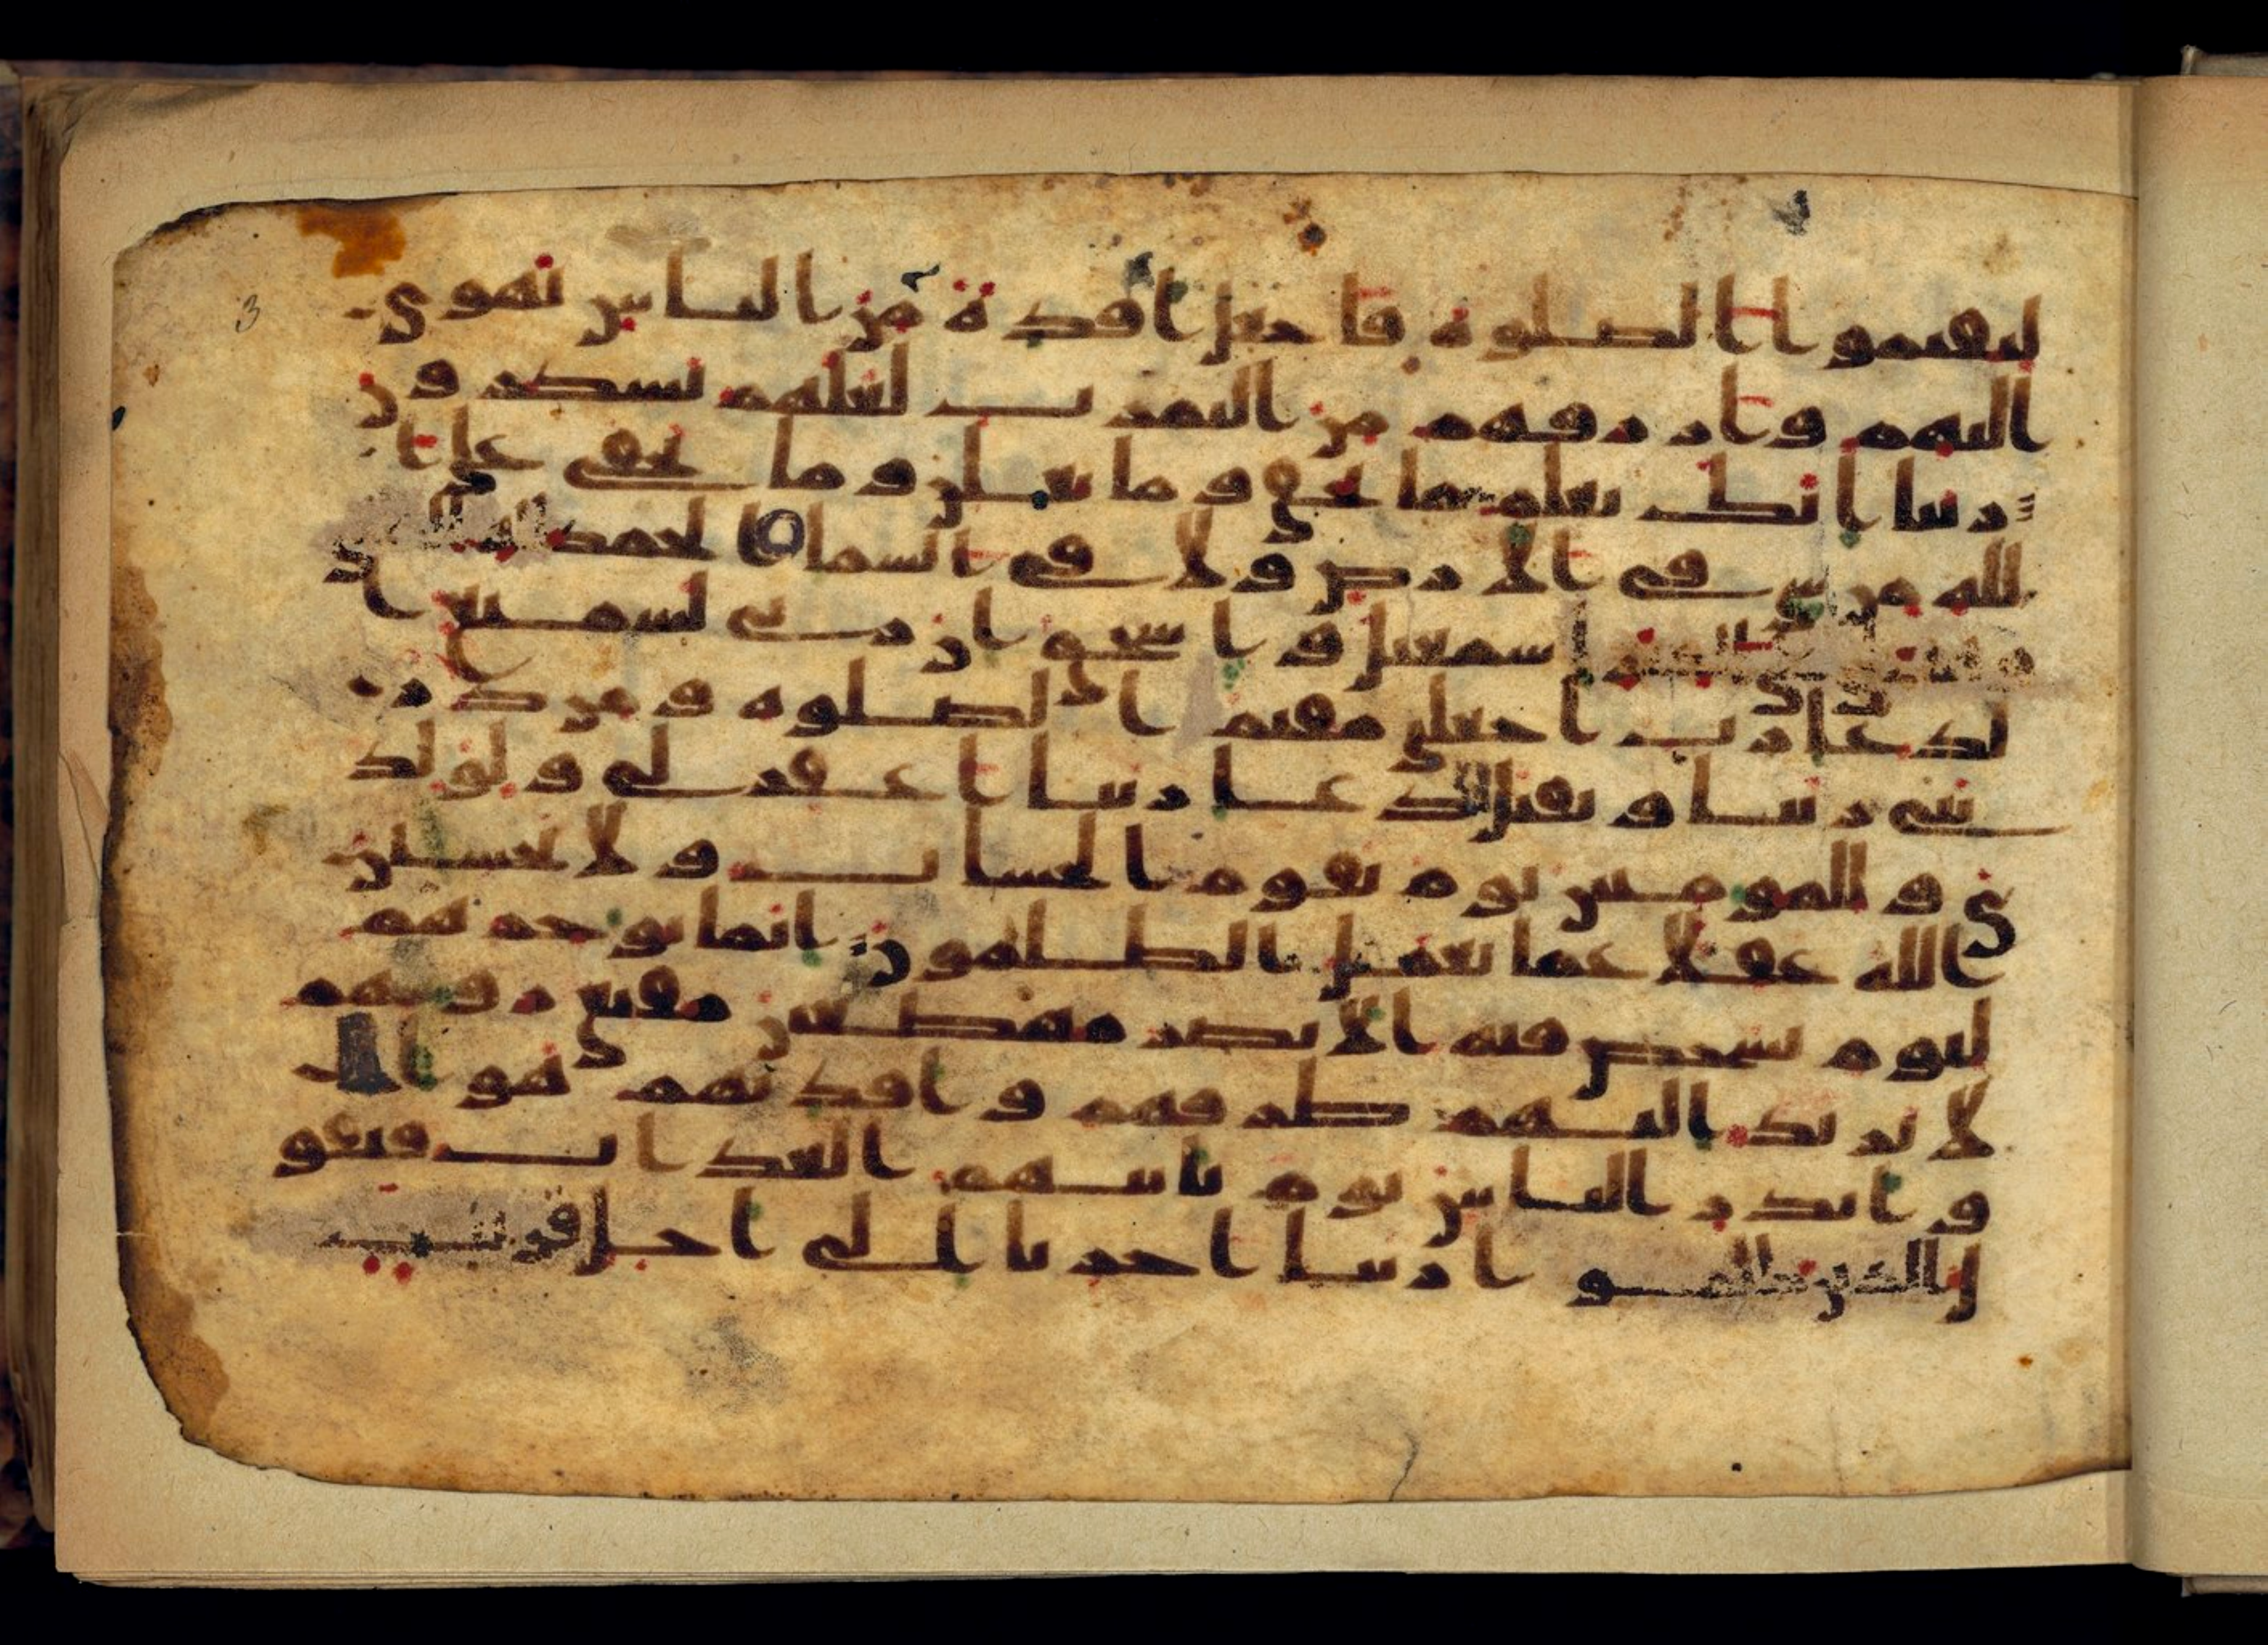 3
ليقيموا الصلوة فاجعل افدة من الناس تهوي
اليهم وارزقهم من الثمرت لعلهم يشكرون
ربنا انك تعلم ما نخفي وما نعلن وما يخفى على ا
لله من شي في الارض ولا في السما الحمد لله الذي
وهب لي على الكبر اسمعيل واسحق ان ربي لسميع ا
لدعا رب اجعلني مقيم الصلوة ومن ذر
يتي ربنا وتقبل دعا ربنا اغفر لي ولولد
ي وللمومنين يوم يقوم الحساب ولا تحسبن
الله غفلا عما يعمل الظلمون انما يوخرهم
ليوم تشخص فيه الابصر مهطعين مقنعي روسهم
لا يرتد اليهم طرفهم وافدتهم هوا
وانذر الناس يوم ياتيهم العذاب فيقو
ل الذين ظلموا ربنا اخرنا الى اجل قريب